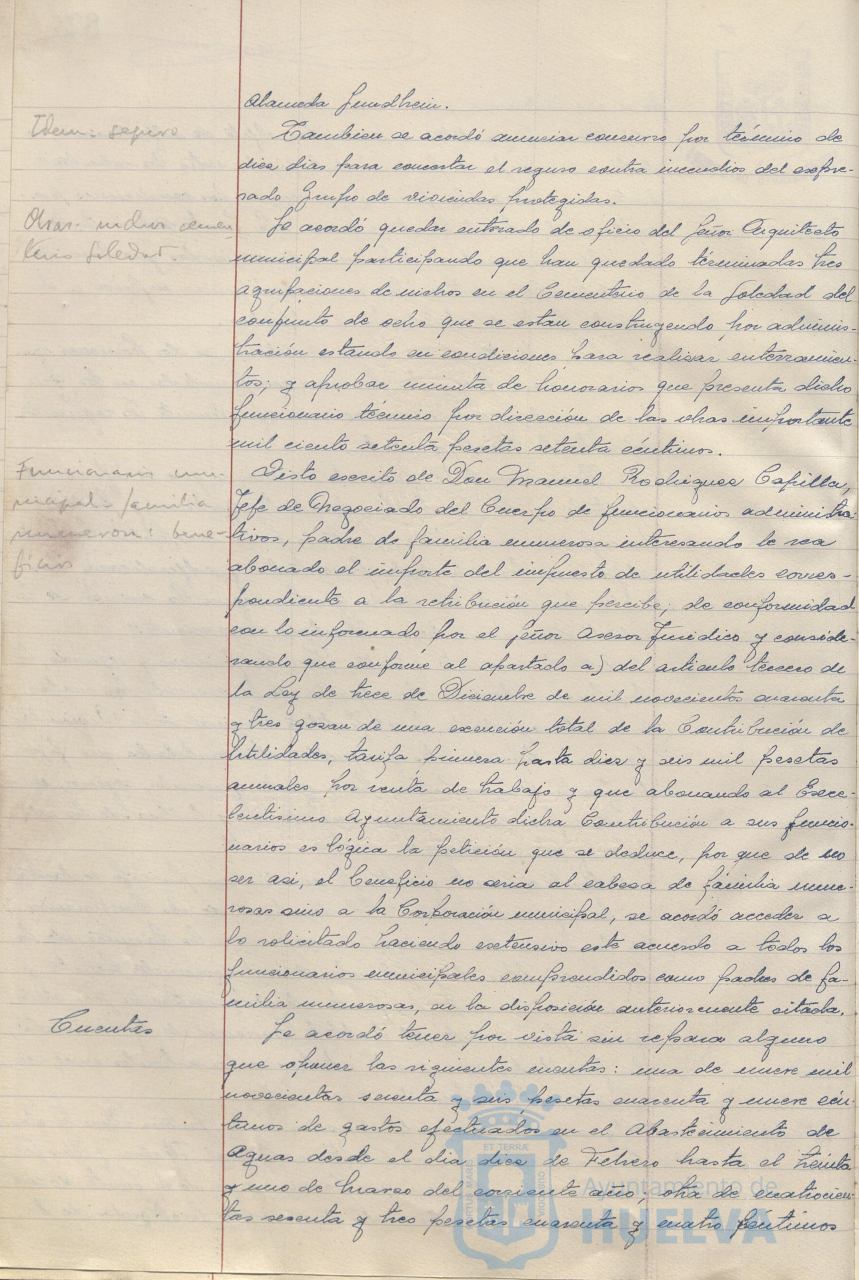 Alameda Sundheim.
Idem: seguro
Tambien se acordó anunciar concurso por término de
diez dias para concertar el seguro contra incendios del expre-
sado Grupo de viviendas protegidas.
Obras: nichos cemen-
terio Soledad.
Se acordó quedar enterado de oficio del Señor Arquitecto
municipal participando que han quedado terminadas tres
agrupaciones de nichos en el Cementerio de la Soledad del
conjunto de ocho que se estan construyendo por adminis-
tración estando en condiciones para realizar enterramien-
tos; y aprobar minuta de honorarios que presenta dicho
funcionario técnico por dirección de las obras importante
mil ciento setenta pesetas setenta céntimos.
Funcionarios mu-
nicipal: familia
numerosa: bene-
ficios
Visto escrito de Don Manuel Rodriguez Capilla,
Jefe de Negociado del Cuerpo de funcionarios administra-
tivos, padre de familia numerosa interesando le sea
abonado el importe del impuesto de utilidades corres-
pondiente a la retribución que percibe; de conformidad
con lo informado por el Señor Asesor Juridico y conside-
rando que conforme al apartado a) del articulo tercero de
la Ley de trece de Diciembre de mil novecientos cuarenta
y tres gozan de una exención total de la Contribución de
Utilidades, tarifa primera hasta diez y seis mil pesetas
anuales por renta de trabajo y que abonando el Exce-
lentisimo Ayuntamiento dicha Contribución a sus funcio-
narios es lógica la petición que se deduce, por que de no
ser asi, el beneficio no seria al cabeza de familia nume-
rosas sino a la Corporación municipal, se acordó acceder a
lo solicitado haciendo extensivo este acuerdo a todos los
funcionarios municipales comprendidos como padres de fa-
milia numerosas, en la disposición anteriormente citada.
Cuentas
Se acordó tener por vista sin reparo alguno
que oponer las siguientes cuentas: una de nueve mil
novecientas sesenta y seis pesetas cuarenta y nueve cén-
timos de gastos efectuados en el Abastecimiento de
Aguas desde el dia diez de Febrero hasta el treinta
y uno de Marzo del corriente año; otra de cuatrocien-
tas sesenta y tres pesetas cuarenta y cuatro céntimos
Ayuntamiento de
HUELVA